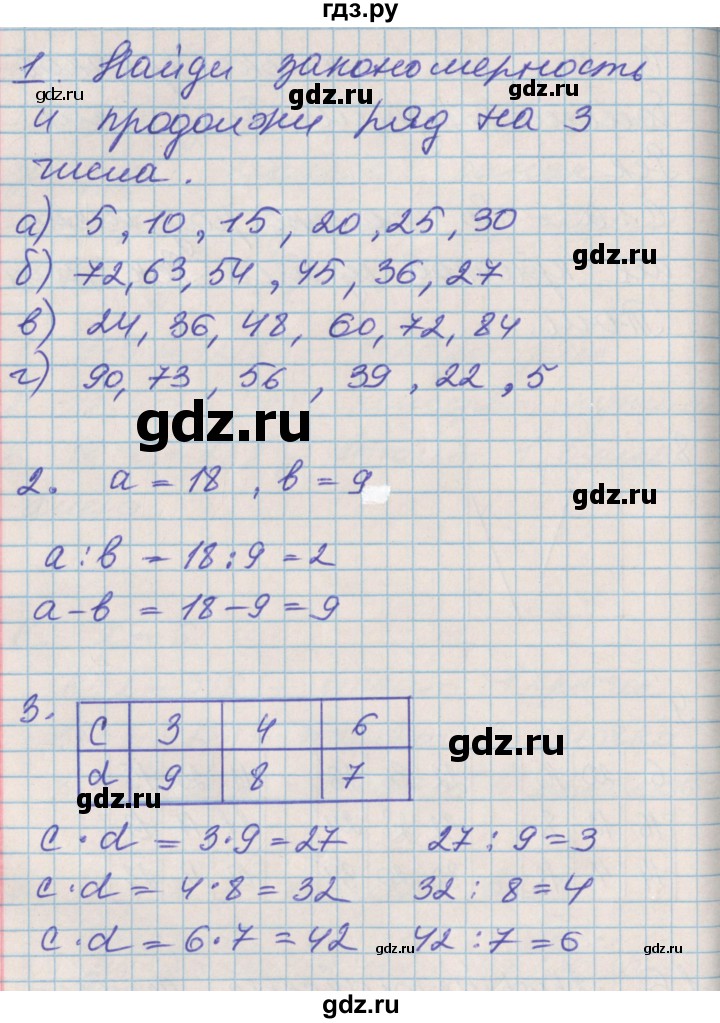 гдз.ру
1. Найди закономерность
gdz.ru gdz.ru gdz.ru
и продолжи ряд на 3
числа.
а) 5, 10, 15, 20, 25, 30
gdz.ru
б) 72, 63, 54, 45, 36, 27
в) 24, 36, 48, 60, 72, 84
г) 90, 73, 56, 39, 22, 5
gdz.ru
2. a = 18, b = 9
gdz.ru
a : b = 18 : 9 = 2
a - b = 18 - 9 = 9
3.
c 3 4 6
gdz.ru
d 9 8 7
gdz.ru
c · d = 3 · 9 = 27 27 : 9 = 3
c · d = 4 · 8 = 32 32 : 8 = 4
c · d = 6 · 7 = 42 42 : 7 = 6
gdz.ru gdz.ru
gdz.ru